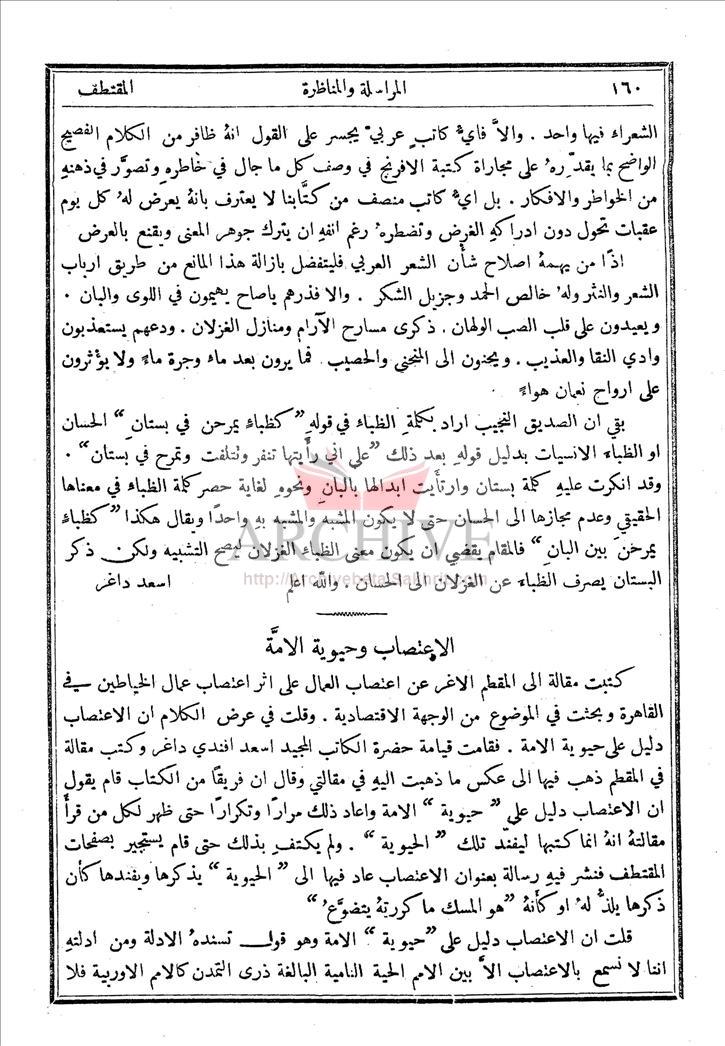 ١٦٠ المراسلة والمناظرة المقتطف
الشعراء فيها واحد . والاَّ فايُّ كاتبٍ عربيّ يجسر على القول انهُ ظافر من الكلام الفصيح
الواضح بما يقدِّرهُ على مجاراة كتبة الافرنج في وصف كل ما جال في خاطرهِ وتصوَّر في ذهنهِ
من الخواطر والافكار . بل ايُّ كاتب منصف من كتَّابنا لا يعترف بانهُ يعرض لهُ كل يوم
عقبات تحول دون ادراكهِ الغرض وتضطرهُ رغم انفهِ ان يترك جوهر المعنى ويقنع بالعرض
اذًا من يهمهُ اصلاح شأن الشعر العربي فليتفضل بازالة هذا المانع من طريق ارباب
الشعر والنثر ولهُ خالص الحمد وجزيل الشكر . والا فذرهم ياصاح يهيمون في اللوى والبان .
ويعيدون على قلب الصب الولهان . ذكرى مسارح الآرام ومنازل الغزلان . ودعهم يستعذبون
وادي النقا والعذيب . ويحنون الى المنحني والحصيب فما يرون بعد ماء وجرة ماءً ولا يؤثرون
على ارواح نعمان هواءً
بقي ان الصديق النجيب اراد بكلمة الظباء في قولهِ ”كظباءٍ يمرحن في بستانِ“ الحسان
او الظباء الانسيات بدليل قولهِ بعد ذلك ”على اني رأيتها تنفر وتتلفت وتمرح في بستان“ .
وقد انكرت عليهِ كلمة بستان وارتأيت ابدالها بالبانِ ونحوهِ لغاية حصر كلمة الظباء في معناها
الحقيقي وعدم مجازها الى الحسان حتى لا يكون المشبه والمشبه بهِ واحدًا ويقال هكذا ”كظباءٍ
يمرحنَ بين البان“ فالمقام يقضي ان يكون معنى الظباء الغزلان ليصح التشبيه ولكن ذكر
البستان يصرف الظباء عن الغزلان الى الحسان . والله اعلم اسعد داغر
ARCHIVE
http://Archivebeta.Sakhrit.com
الاعتصاب وحيوية الامَّة
كتبت مقالة الى المقطم الاغر عن اعتصاب العمال على اثر اعتصاب عمال الخياطين في
القاهرة وبحثت في الموضوع من الوجهة الاقتصادية . وقلت في عرض الكلام ان الاعتصاب
دليل على حيوية الامة . فقامت قيامة حضرة الكاتب المجيد اسعد افندي داغر وكتب مقالة
في المقطم ذهب فيها الى عكس ما ذهبت اليهِ في مقالتي وقال ان فريقًا من الكتاب قام يقول
ان الاعتصاب دليل على ”حيوية“ الامة واعاد ذلك مرارًا وتكرارًا حتى ظهر لكل من قرأَ
مقالتهُ انهُ انما كتبها ليفنّد تلك ”الحيوية“ . ولم يكتفِ بذلك حتى قام يستجير بصفحات
المقتطف فنشر فيهِ رسالة بعنوان الاعتصاب عاد فيها الى ”الحيوية“ يذكرها ويفندها كأن
ذكرها يلذُّ لهُ او كأنهُ ”هو المسك ما كررتهُ يتضوَّعُ“
قلت ان الاعتصاب دليل على ”حيوية“ الامة وهو قول تسندهُ الادلة ومن ادلتهِ
اننا لا نسمع بالاعتصاب الاَّ بين الامم الحية النامية البالغة ذرى التمدن كالامم الاوربية فلا